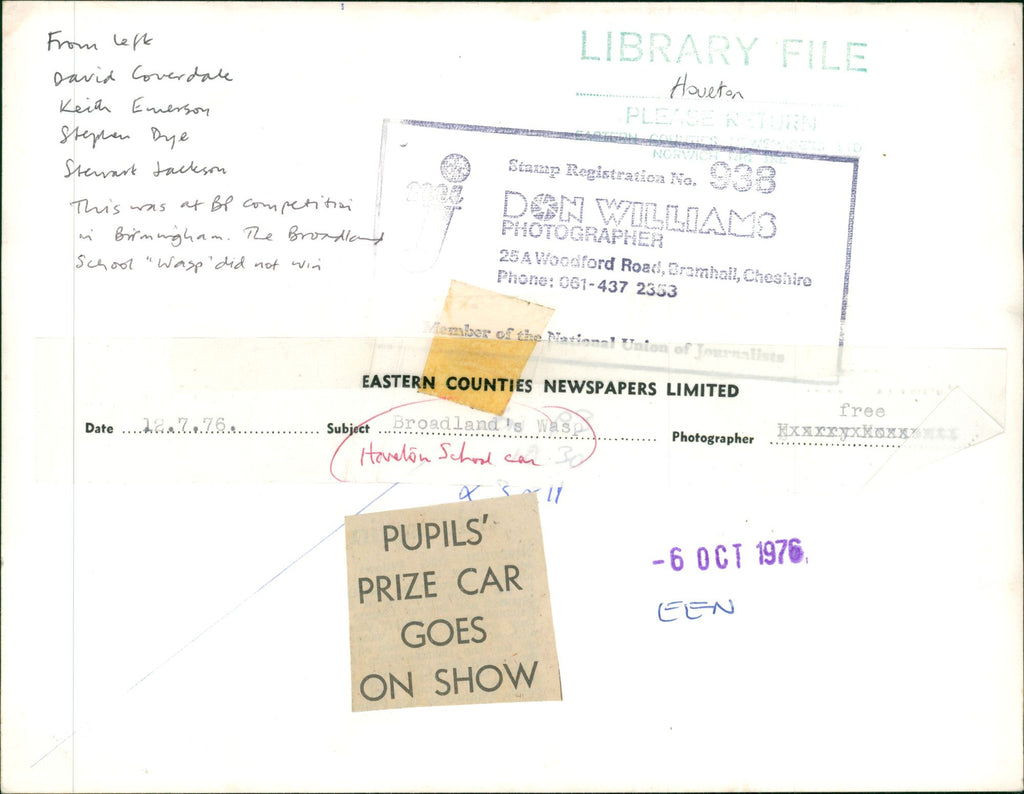 From left
David Coverdale
Keith Emerson
Stephen Dye
Stewart Jackson
This was at BP competition
in Birmingham. The Broadland
School "Wasp" did not win
LIBRARY FILE
Hoveton
PLEASE RETURN
EASTERN COUNTIES NEWSPAPERS LTD
NORWICH
Stamp Registration No. 938
DON WILLIAMS
PHOTOGRAPHER
25A Woodford Road, Bramhall, Cheshire
Phone: 061-437 2353
Member of the National Union of Journalists
EASTERN COUNTIES NEWSPAPERS LIMITED
free
Date 12.7.76. Subject Broadland's Wasp Photographer
Hoveton School car
PUPILS'
PRIZE CAR
GOES
ON SHOW
-6 OCT 1976
EEN